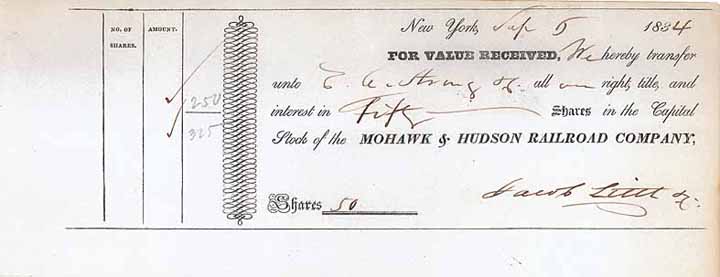 NO. OF SHARES. AMOUNT.
250
325
New York, Sep 5 1834
FOR VALUE RECEIVED, We hereby transfer
unto E. A. Strong & Co. all our right, title, and
interest in Fifty Shares in the Capital
Stock of the MOHAWK & HUDSON RAILROAD COMPANY,
Jacob Little & Co.
Shares 50